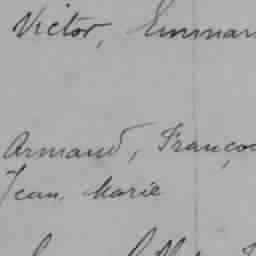 Victor, Emman
Armand, Françoi
Jean, Marie